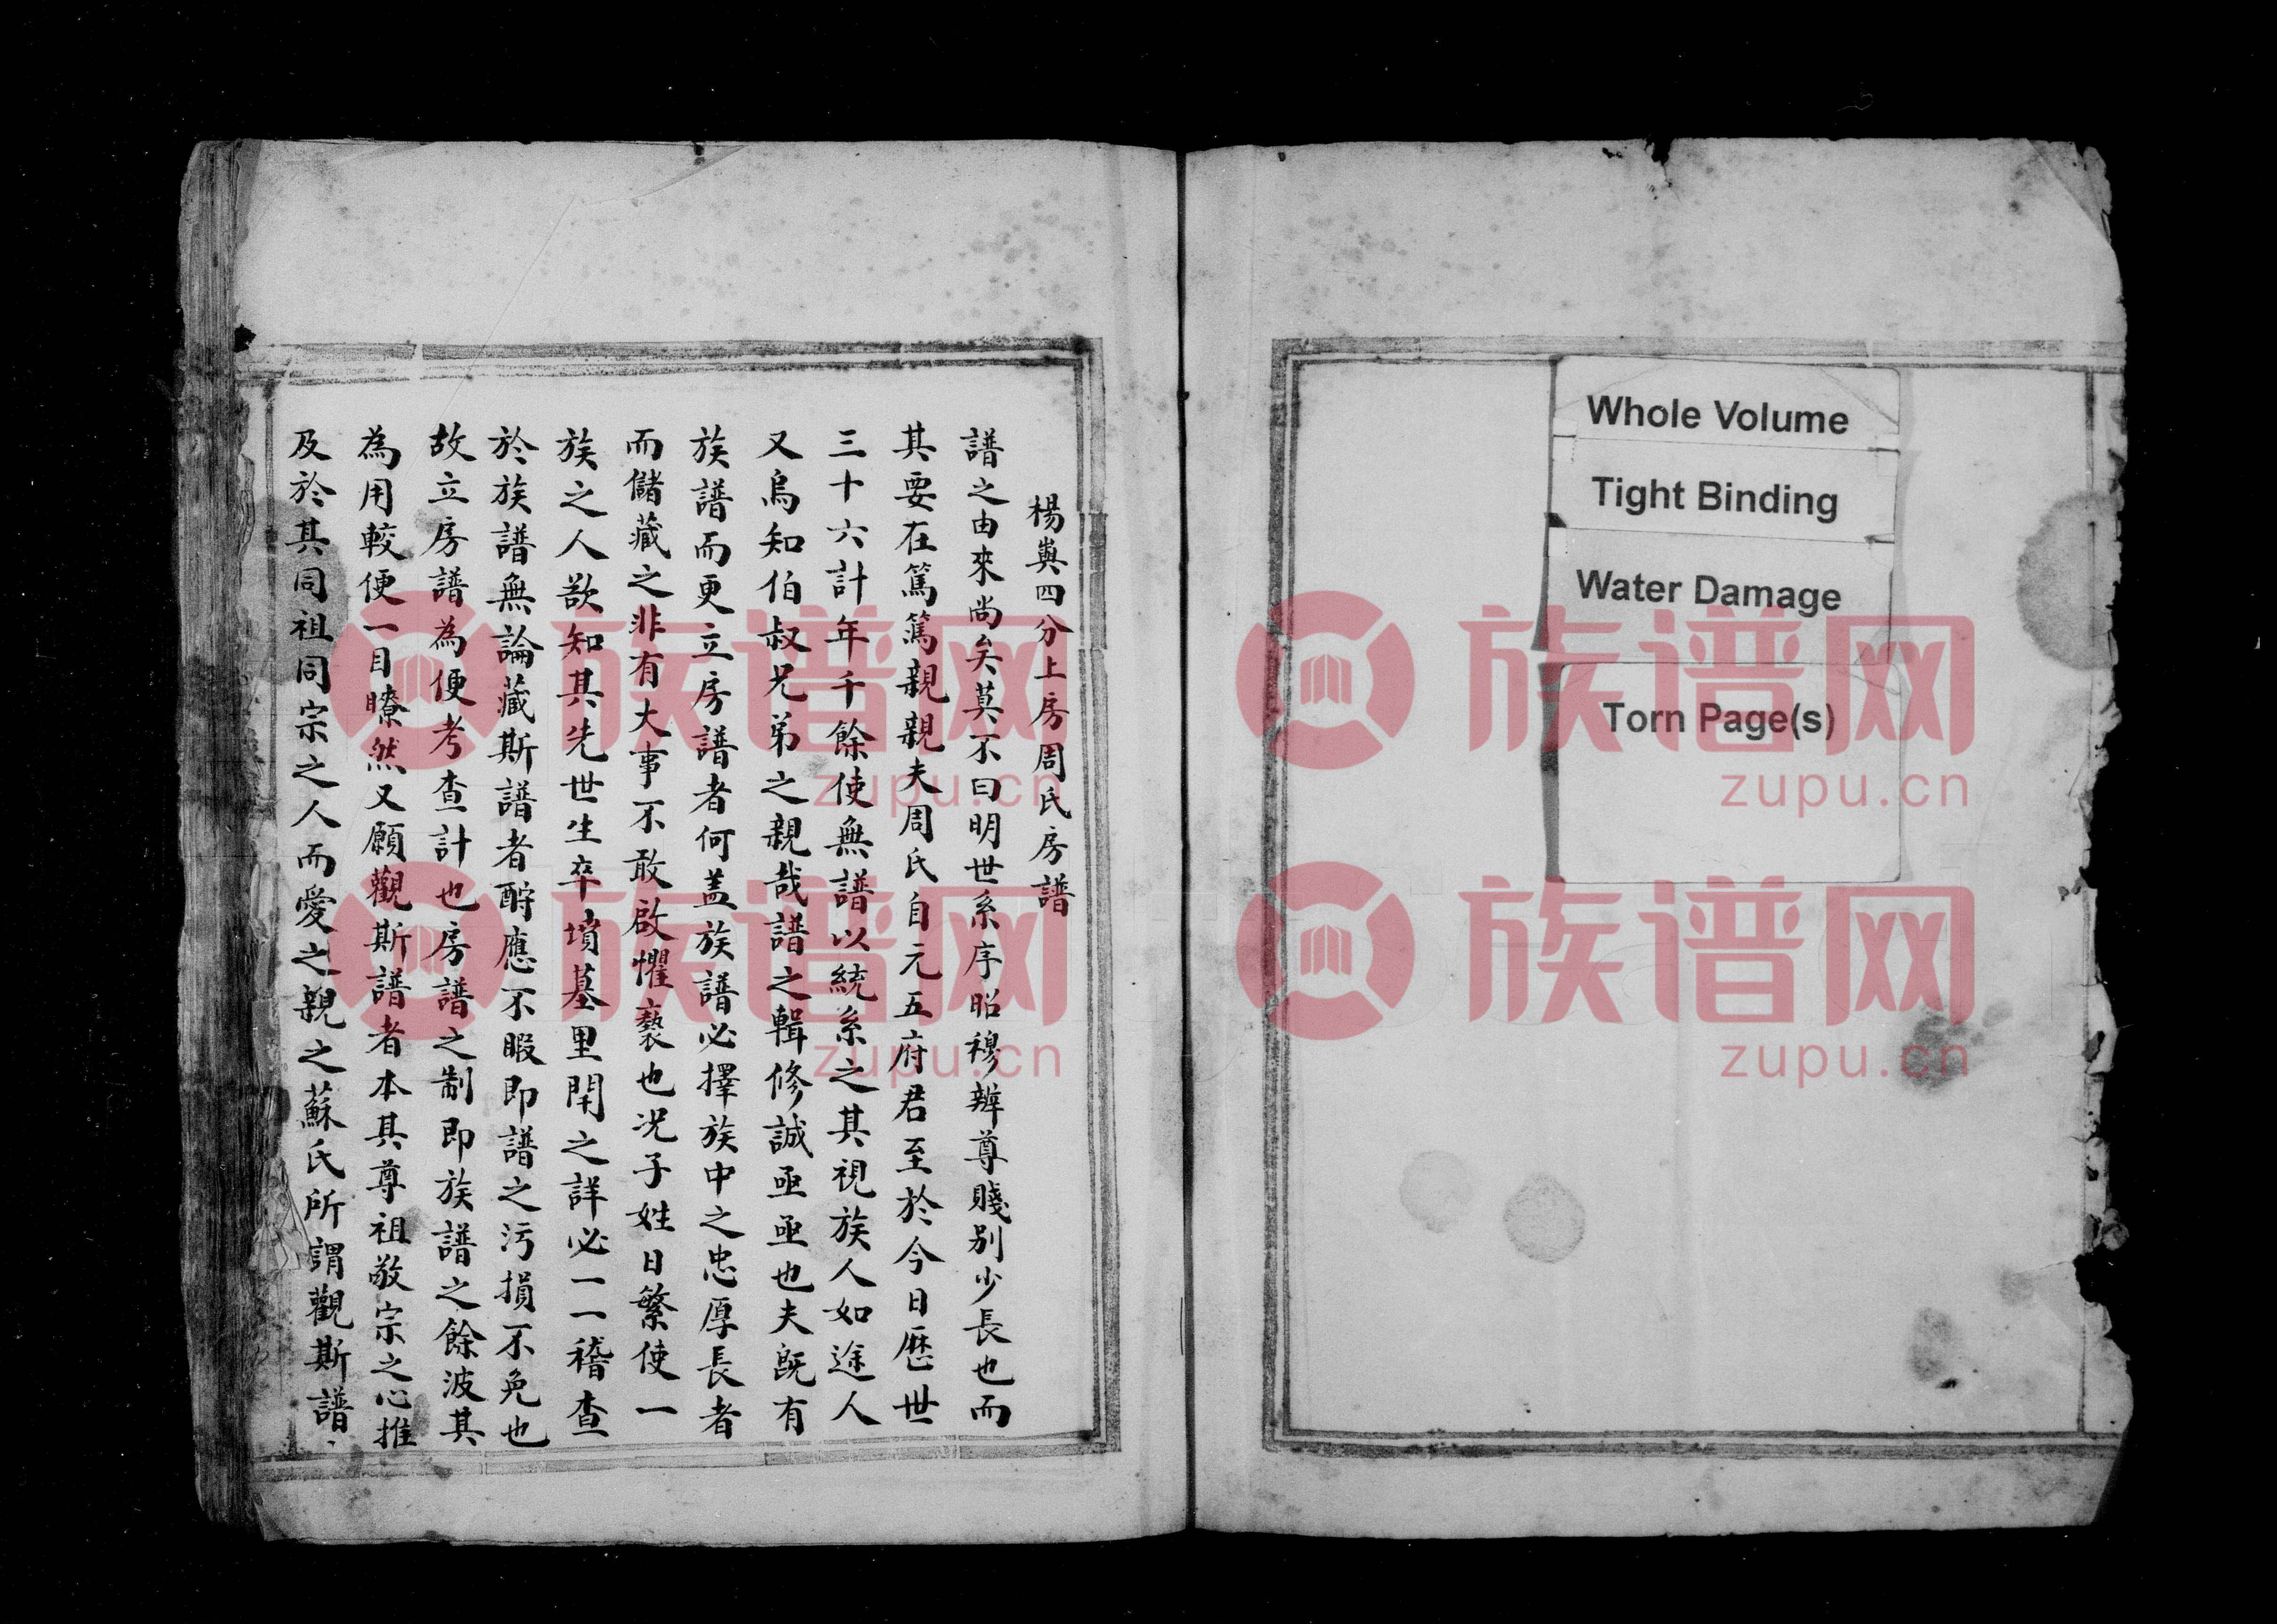 Whole Volume
Tight Binding
Water Damage
Torn Page(s)
楊㠘四分上房周氏房譜
譜之由來尚矣莫不曰明世系序昭穆辨尊賤别少長也而
其要在篤篤親親夫周氏自元五府君至於今日歷世
三十六計年千餘使無譜以統系之其視族人如途人
又烏知伯叔兄弟之親哉譜之輯修誠亟亟也夫既有
族譜而更立房譜者何盖族譜必擇族中之忠厚長者
而儲藏之非有大事不敢啟懼褻也况子姓日繁使一
族之人欲知其先世生卒墳墓里閈之詳必一一稽查
於族譜無論藏斯譜者酧應不暇即譜之污損不免也
故立房譜為便考查計也房譜之制即族譜之餘波其
為用較便一目瞭然又願觀斯譜者本其尊祖敬宗之心推
及於其同祖同宗之人而愛之親之蘇氏所謂觀斯譜
族谱网
zupu.cn
族谱网
zupu.cn
族谱网
zupu.cn
族谱网
zupu.cn